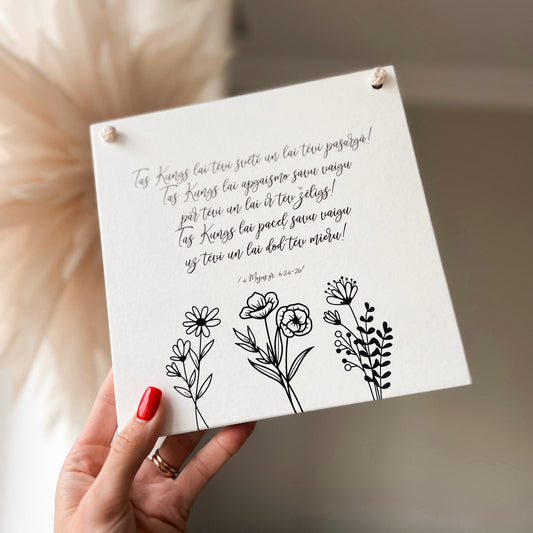 Tas Kungs lai tevi svētī un lai tevi pasargā!
Tas Kungs lai apgaismo savu vaigu
pār tevi un lai ir tev žēlīgs!
Tas Kungs lai paceļ savu vaigu
uz tevi un lai dod tev mieru!
/4.Mozus gr. 6:24-26/